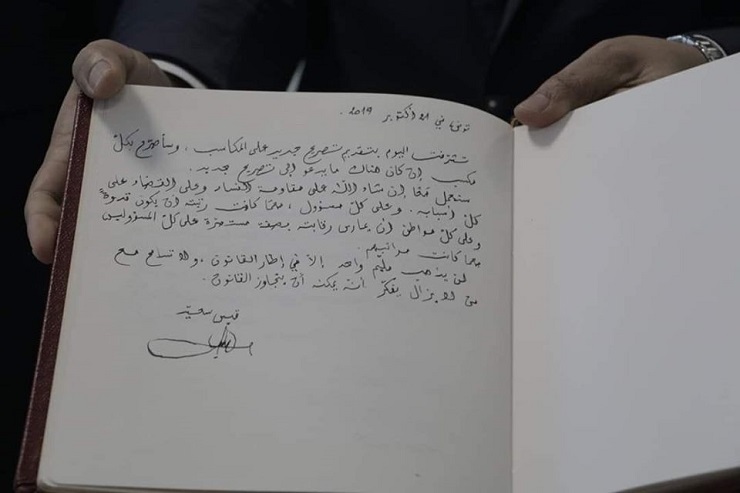 تونس في 21 أكتوبر 2019.
تشرفت اليوم بتقديم تصريح جديد على المكاسب، وسأصرّح بكلّ
مكسب إن كان هناك ما يدعو إلى تصريح جديد.
سنعمل معًا إن شاء اللّه على مقاومة الفساد وعلى القضاء على
كلّ أسبابه. وعلى كلّ مسؤول، مهما كانت رتبته أن يكون قدوةً
وعلى كلّ مواطن أن يمارس رقابته بصفة مستمرّة على كلّ المسؤولين
مهما كانت مراتبهم.
لن يذهب مليم واحد إلاّ في إطار القانون، ولا تسامح مع
من لا يزال يفكّر أنّه يمكنه أن يتجاوز القانون.
قيس سعيّد